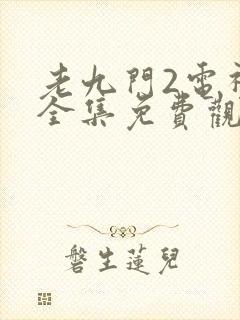 老九門2電視
全集免費觀
磐生蓮兒